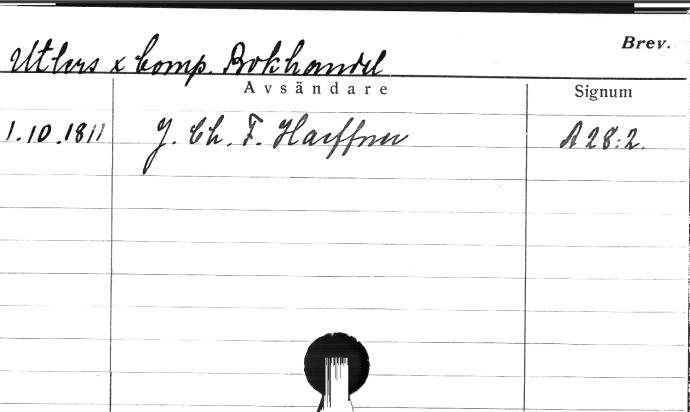 Brev.
Utlers & Comp. Bokhandel
Avsändare Signum
1.10.1811 J. Ch. F. Haeffner A 28:2.